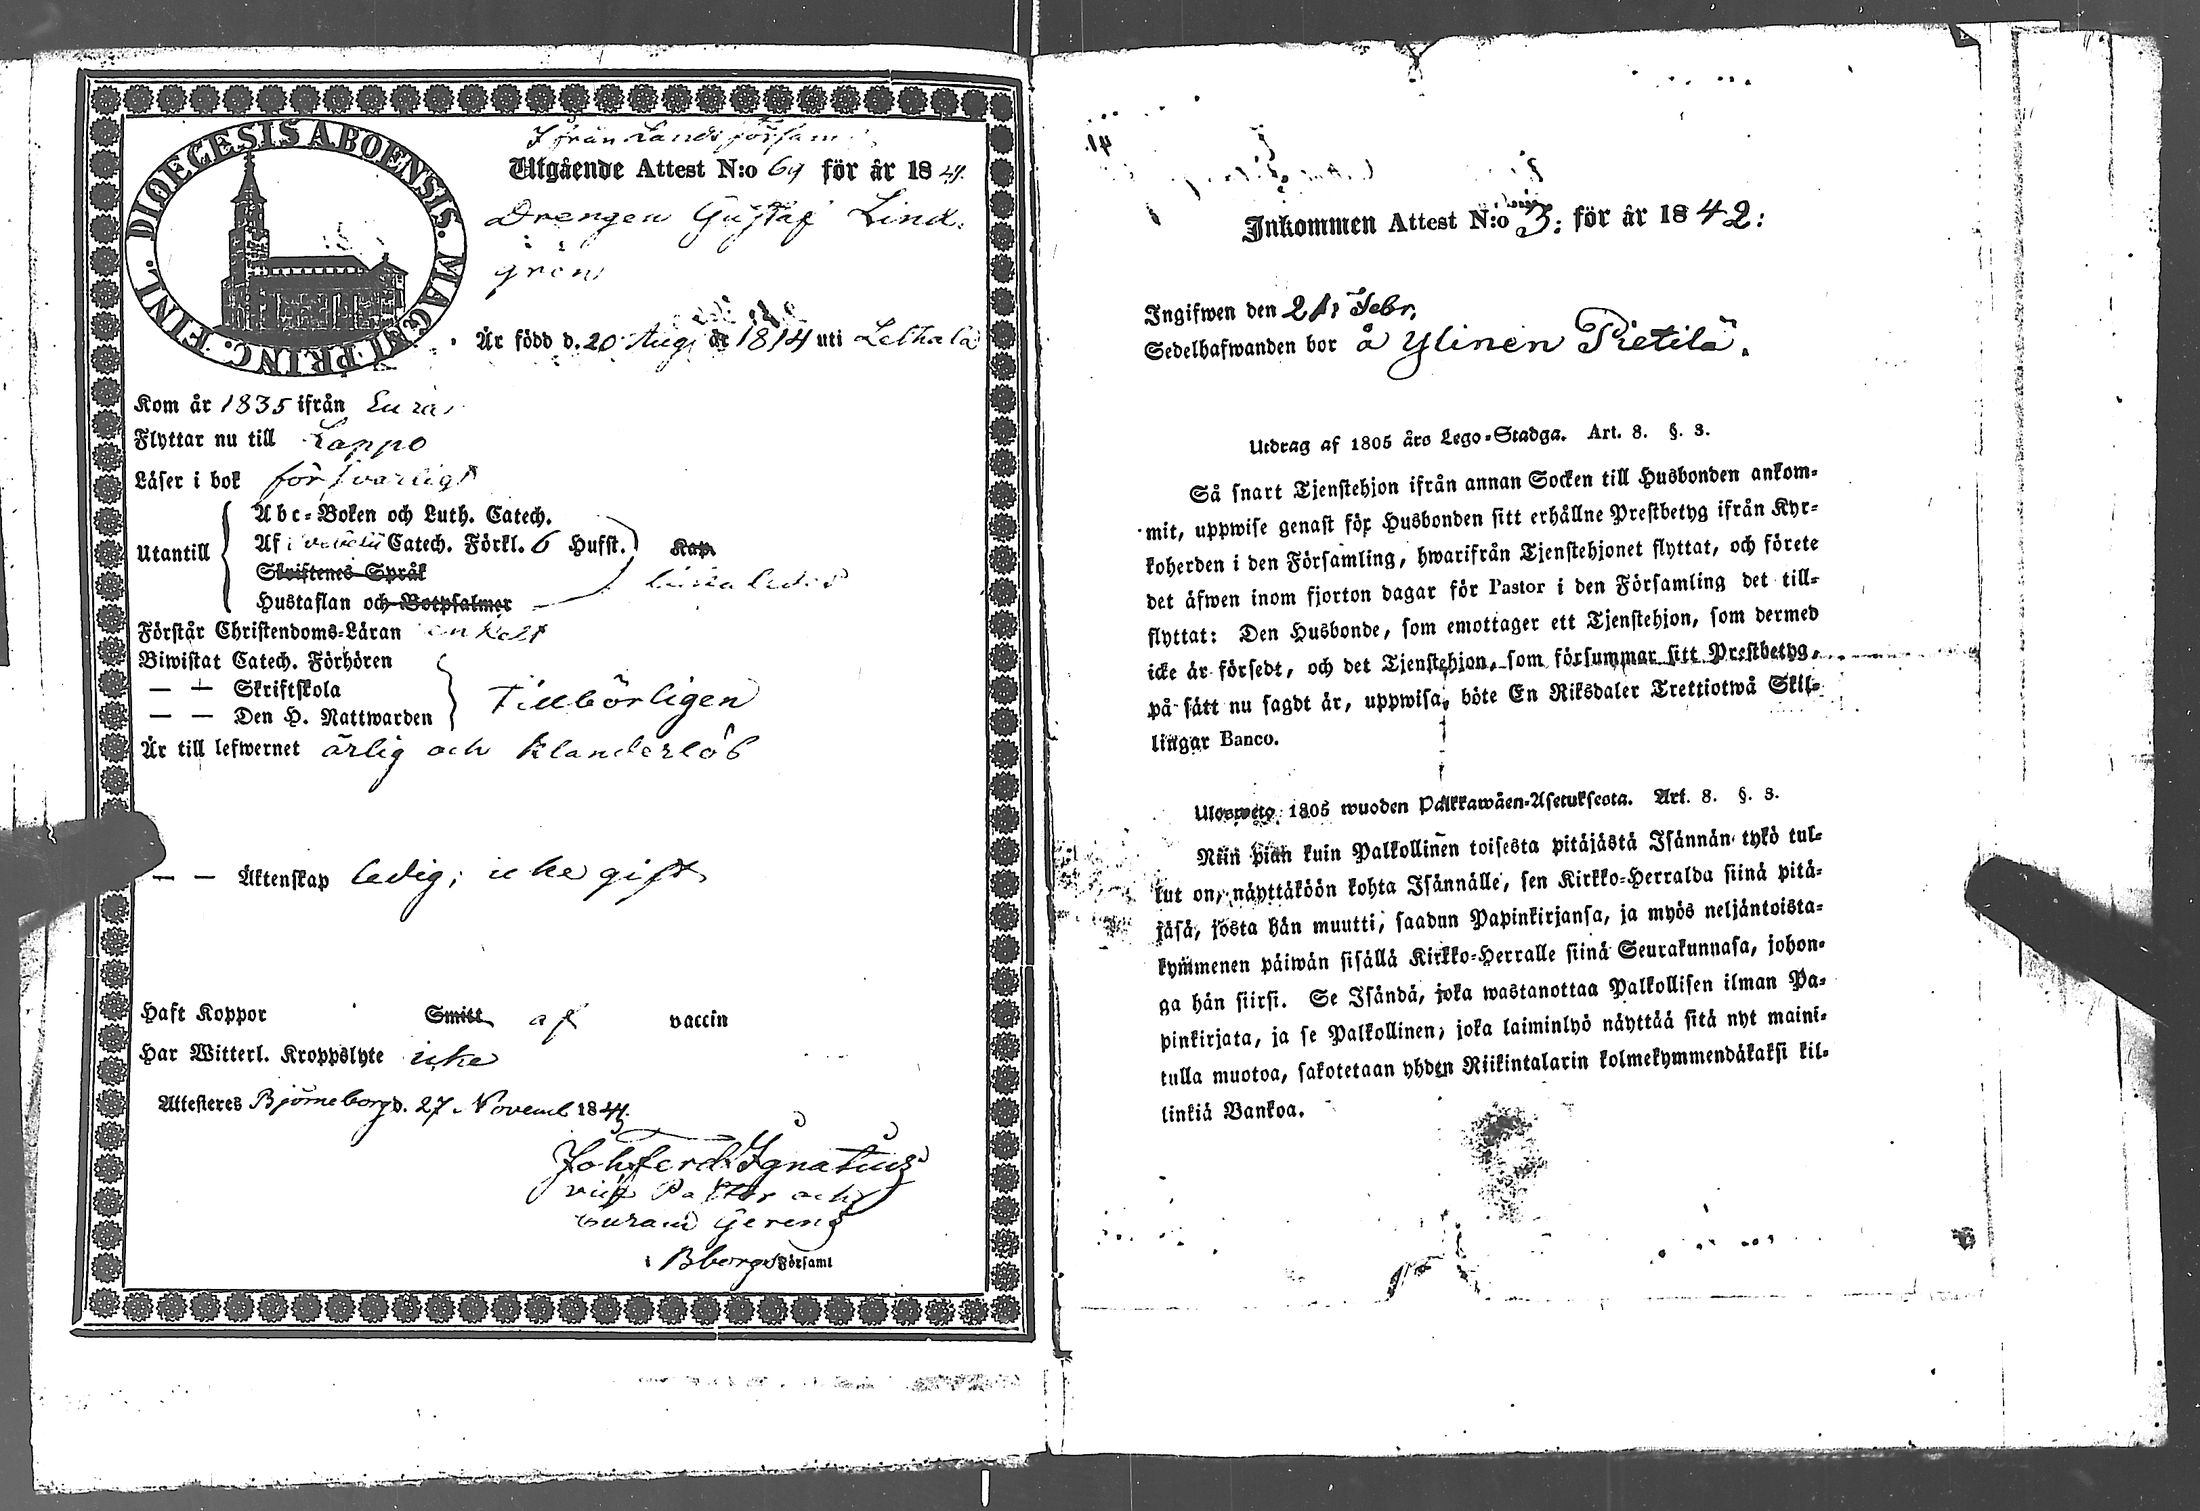 DIOECESIS ABOENSIS. MAGNI PRINC. FINL.
Ifrån Lands försam
Utgående Attest N:o 69 för år 1841.
Drengen Gustaf Lind-
grén
Är född d. 20 Aug. år 1814 uti Lethala
Kom år 1835 ifrån Eura
Flyttar nu till Lappo
Läser i bok försvarligt
Utantill
Abc-Boken och Luth. Catech.
Af Svebelii Catech. Förkl. 6 Hufst. Kap.
Skriftenes Språk
Hustaflan och Botpsalmer
Förstår Christendoms-Läran enkelt
Biwistat Catech. Förhören
— — Skriftskola
— — Den H. Nattwarden
tillbörligen
Är till lefwernet ärlig och klanderlös
— — Äktenskap ledig; icke gift
Haft Koppor Smitt af vaccin
Har Witterl. Kroppslyte icke
Attesteres Björneborg d. 27 Novemb 1841.
Joh. Ferd. Ignatius
vice Pastor och
Curam Gerens
i Bborgs Församl
Inkommen Attest N:o 3: för år 1842:
Ingifwen den 21 Febr.
Sedelhafwanden bor å Ylinen Pietilä.
Utdrag af 1805 års Lego-Stadga. Art. 8. §. 3.
Så snart Tjenstehjon ifrån annan Socken till Husbonden ankom-
mit, uppwise genast för Husbonden sitt erhållne Prestbetyg ifrån Kyr-
koherden i den Församling, hwarifrån Tjenstehjonet flyttat, och förete
det äfwen inom fjorton dagar för Pastor i den Församling det till-
flyttat: Den Husbonde, som emottager ett Tjenstehjon, som dermed
icke är försedt, och det Tjenstehjon, som försummar sitt Prestbetyg,
på sätt nu sagdt är, uppwisa, böte En Riksdaler Trettiotwå Skil-
lingar Banco.
Ulosweto 1805 wuoden Palkkawäen-Asetuksesta. Art. 8. §. 3.
Niin pian kuin Palkollinen toisesta pitäjästä Isännän tykö tul-
lut on, näyttäköön kohta Isännälle, sen Kirkko-Herralda siinä pitä-
jäsä, josta hän muutti, saadun Papinkirjansa, ja myös neljäntoista-
kymmenen päiwän sisällä Kirkko-Herralle siinä Seurakunnasa, johon-
ga hän siirsi. Se Isändä, joka wastanottaa Palkollisen ilman Pa-
pinkirjata, ja se Palkollinen, joka laiminlyö näyttää sitä nyt maini-
tulla muotoa, sakotetaan yhden Riikintalarin kolmekymmendäkaksi kil-
linkiä Bankoa.